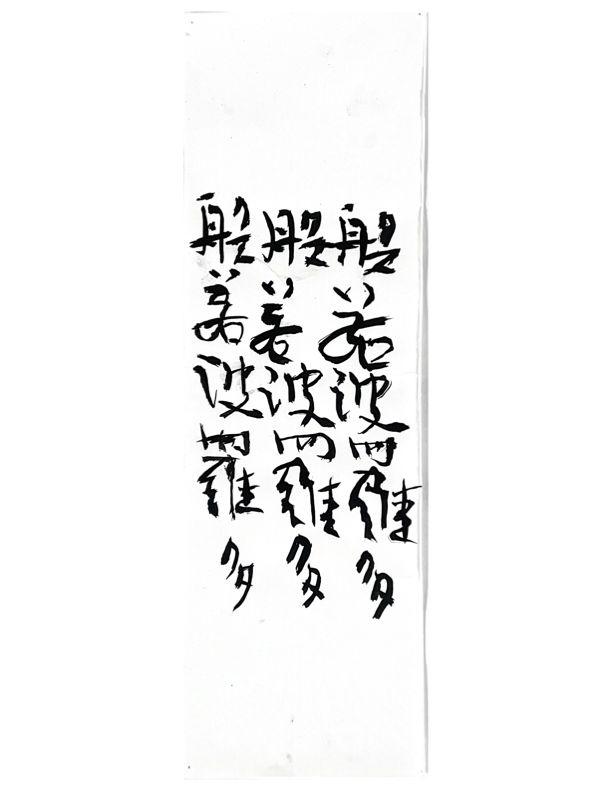 般若波羅多
般若波羅多
般若波羅多